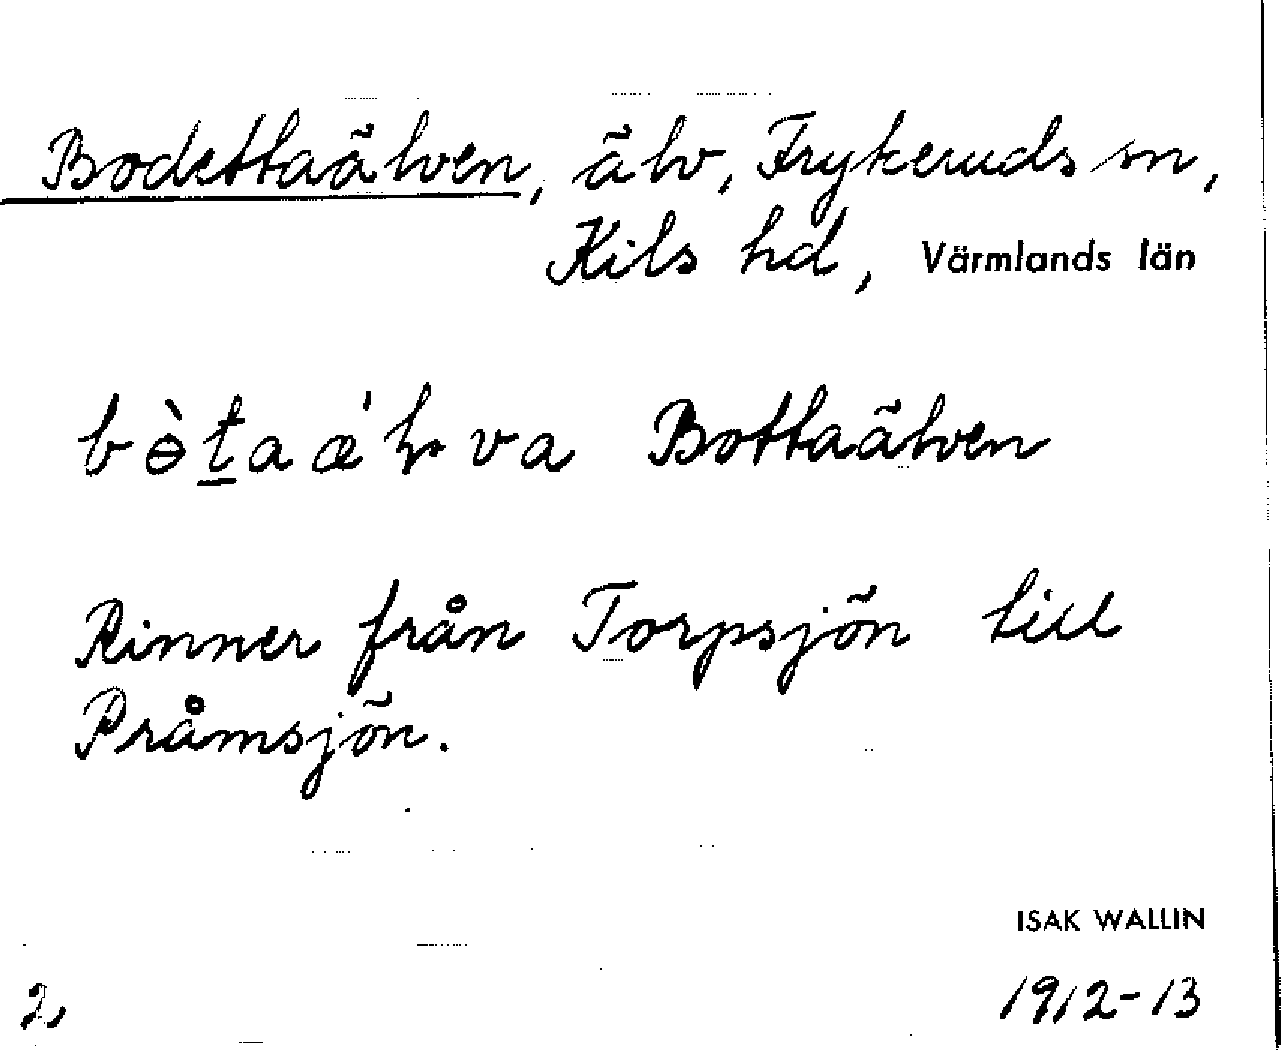 Bodettaälven, älv, Frykeruds sn,
Kils hd, Värmlands län
Bottaälven
Rinner från Torpsjön till
Pråmsjön.
ISAK WALLIN
2, 1912-13